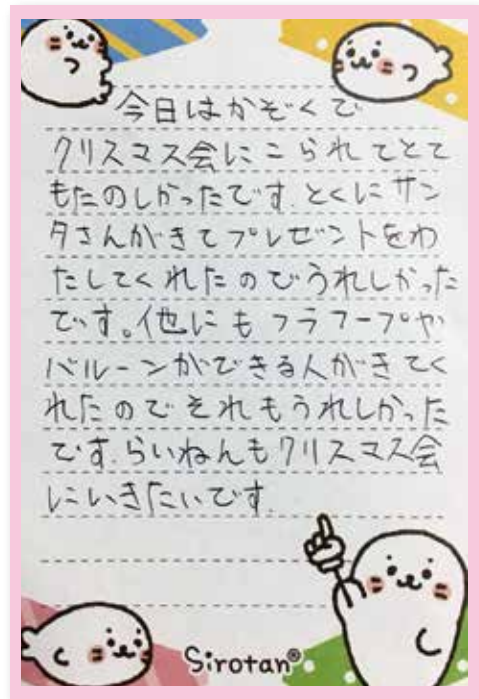 今日はかぞくで
クリスマス会にこられてとて
もたのしかったです.とくにサン
タさんがきてプレゼントをわ
たしてくれたのでうれしかった
です。他にもフラフープや
バルーンができる人がきてく
れたのでそれもうれしかった
です.らいねんもクリスマス会
にいきたいです.
Sirotan®